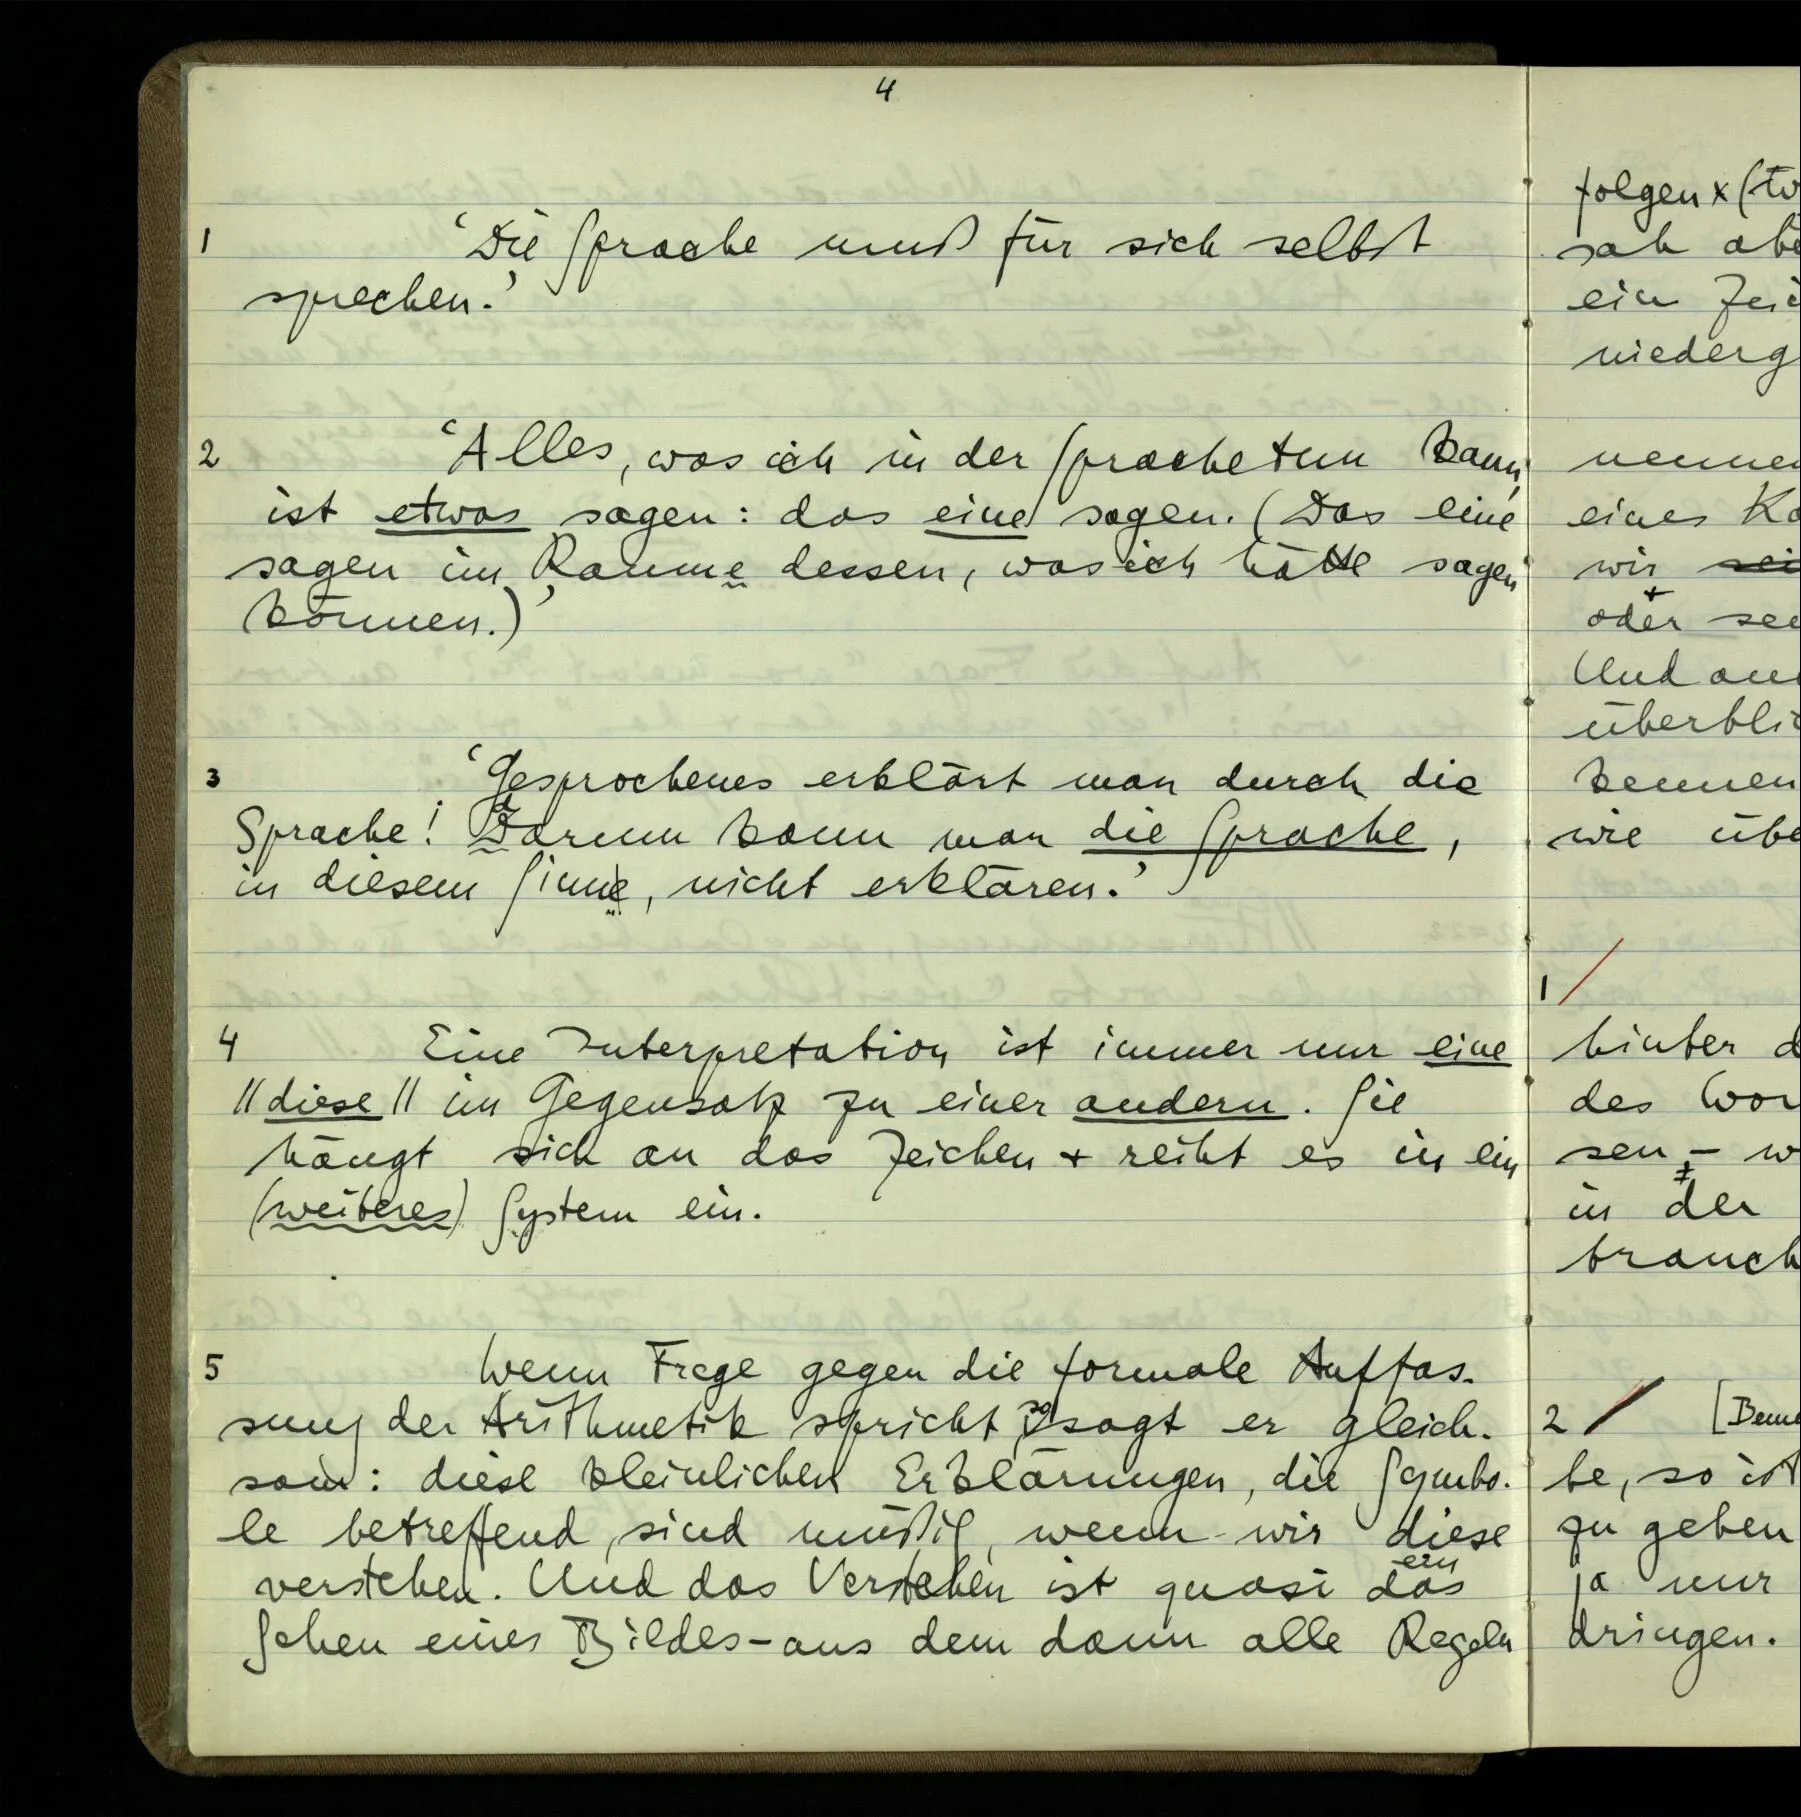 4
1 ‘Die Sprache muß für sich selbst
sprechen.’
2 ‘Alles, was ich in der Sprache tun kann,
ist etwas sagen: das eine sagen. (Das eine
sagen im Raume dessen, was ich hätte sagen
können.)’
3 ‘Gesprochenes erklärt man durch die
Sprache! Darum kann man die Sprache,
in diesem Sinne, nicht erklären.’
4 Eine Interpretation ist immer nur eine
//diese// im Gegensatz zu einer andern. Sie
hängt sich an das Zeichen + reiht es in ein
(weiteres) System ein.
5 Wenn Frege gegen die formale Auffas-
sung der Arithmetik spricht, so sagt er gleich-
sam: diese kleinlichen Erklärungen, die Symbo-
le betreffend, sind müßig, wenn wir diese
verstehen. Und das Verstehen ist quasi das
ein
Sehen eines Bildes – aus dem dann alle Regeln
folgen x (
sah
ein
eines
wir
oder
Und
wie
1
hinter
des
sen –
in der
2
be, so ist
zu geben
ja nur
dringen.